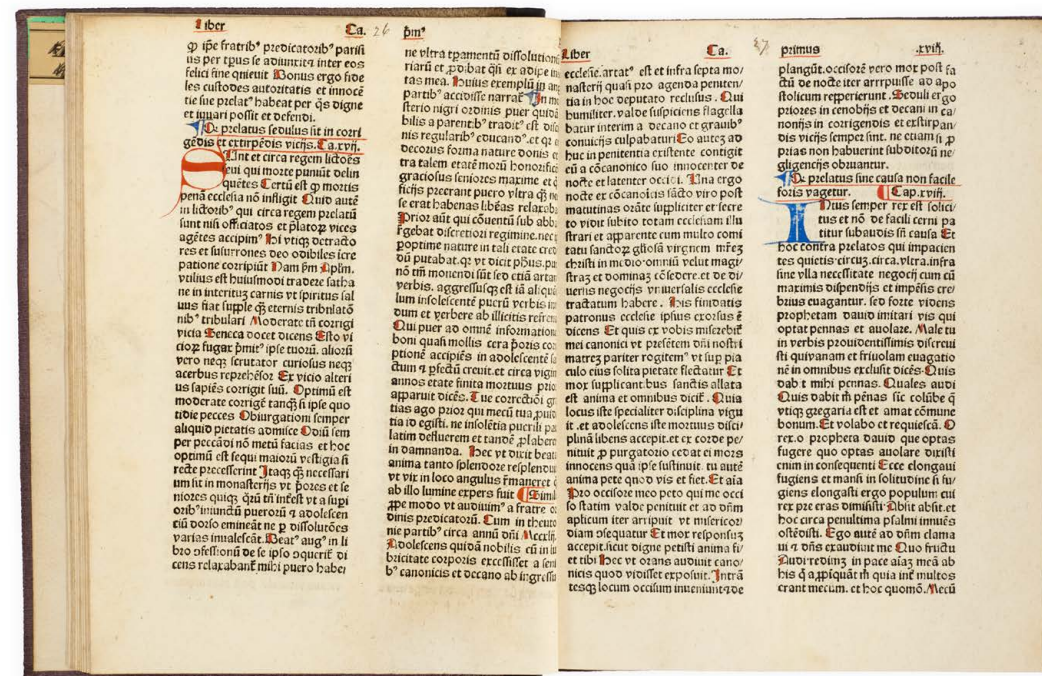 Liber Ca. 26 pm⁹
ꝙ ip̄e fratrib⁹ predicatorib⁹ parisi
us per tp̄us se adiunxit inter eos
felici fine quieuit Bonus ergo fide
les custodes autoritatis et innocē
tie sue prelat⁹ habeat per q̄s digne
et iuuari possit et defendi.
Qꝫ prelatus sedulus sit in corri
gēdis et extirpēdis vicijs. Ca.xvij.
SUnt et circa regem lictōes
seui qui morte puniūt delin
quētes Certū est ꝙ mortis
penā ecclesia nō infligit Quid autē
in lictorib⁹ qui circa regem prelatū
sunt nisi officiatos et p̄latoꝝ vices
agētes accipim⁹ Hi vtiqꝫ detracto
res et susurrones deo odibiles icre
patione corripiūt Nam ꝑm Apl'm.
vtilius est huiusmodi tradere satha
ne in interituꝫ carnis vt spiritus sal
uus fiat supple qꝫ eternis tribulatō
nib⁹ tribulari Moderate tn̄ corrigi
vicia Seneca docet dicens Esto vi
cioꝝ fugax p̄mit⁹ ipse tuorū. alioꝝ
vero neqꝫ scrutator curiosus neqꝫ
acerbus reprehēsor Ex vicio alteri
us sapiēs corrigit suū. Optimū est
moderate corrigē tanqꝫ si ipse quo
tidie pecces Obiurgationi semper
aliquid pietatis admisce Odiū sem
per peccādi nō metū facias et hoc
optimū est sequi maiorū vestigia si
recte precesserint Itaqꝫ qꝫ necessari
um sit in monasterijs vt p̄ores et se
niores quiqꝫ qrū tm̄ inest vt a supi
orib⁹ iniunctū puerorū ⁊ adolescen
tiū dorso emineāt ne ꝑ dissolutōes
varias inualescāt. Beat⁹ aug⁹ in li
bro ꝯfessionū de se ipso ꝯquerit̄ di
cens relaxabant̄ mihi puero habe/
ne vltra tꝑamentū dissolution
riarū et ꝓdibat q̄si ex adipe in
tas mea. Huius exemplū in an
partib⁹ accidisse narrat̄ In mo
sterio nigri ordinis puer quidā
bilis a parentib⁹ tradit⁹ est disc
nis regularib⁹ educand⁹.et qꝛ e
decorus forma nature donis e
tra talem etatē morū honorific
graciosus seniores maxime et q
ficijs preerant puero vltra qꝫ ne
se erat habenas libēas relaxaba
Prior aūt qui cōuentū sub abba
r̄gebat discretiori regimine.nec
ꝓoptime nature in tali etate cred
dū putabat.qꝛ vt dicit ph̄us.pu
nō tm̄ monendi sūt sed etiā artan
verbis. aggressusqꝫ est iā aliqua
lum insolescentē puerū verbis in
dum et verbere ab illicitis refren
Qui puer ad omnē information
boni quasi mollis cera p̄oris cor
ptionē accipiēs in adolescentē sa
ctum ⁊ ꝑfectū creuit.et circa vigin
annos etate finita mortuus prio
apparuit dicēs. Tue correctiōi gr
tias ago prior qui mecū tua ꝓuid
tia id egisti. ne insolētia puerili pau
latim defluerem et tandē ꝓlabere
in damnanda. Hec vt dixit beat
anima tanto splendore resplendui
vt vix in loco angulus r̄maneret q
ab illo lumine expers fuit Simil
ꝓpe modo vt audiuim⁹ a fratre or
dinis predicatorū. Cum in theuto
nie partib⁹ circa annū dn̄i Mccxlij.
Adolescens quidā nobilis cū in lu
bricitate corporis excessisset a seni
b⁹ canonicis et decano ab ingressu
Liber Ca. 27 primus .xviij.
ecclesie.artat⁹ est et infra septa mo/
nasterij quasi pro agenda peniten/
tia in hoc deputato reclusus. Qui
humiliter.valde suspiciens flagella
batur interim a decano et grauib⁹
conuicijs culpabatur: Eo autez ad
huc in penitentia existente contigit
cū a cōcanonico suo innocenter de
nocte et latenter occidi. Una ergo
nocte ex cōcanonicis sācto viro post
matutinas orāte suppliciter et secre
to vidit subito totam ecclesiam illu
strari et apparente cum multo comi
tatu sanctoꝝ gl'iosā virginem mr̄eꝫ
christi in medio:omniū velut magi/
straꝫ et dominaꝫ cōsedere.et de di/
uersis negocijs vniuersalis ecclesie
tractatum habere. His finidatis
patronus ecclesie ipsius exorsus ē
dicens Et quis ex vobis miserebit̄
mei canonici vt presētem dn̄i nostri
matreꝫ pariter rogitem⁹ vt sup pia
culo eius solita pietate flectatur Et
mox supplicantibus sanctis allata
est anima et omnibus dicit̄. Quia
locus iste specialiter disciplina vigu
it .et adolescens iste mortuus disci/
plinā libens accepit.et ex corde pe/
nituit ꝓ purgatorio cedat ei mors
innocens quā ipse sustinuit. tu autē
anima pete quod vis et fiet. Et aīa
Pro occisore meo peto qui me occi
so statim valde penituit et ad dn̄m
aplicum iter arripuit vt misericor/
diam ꝯsequatur Et mox responsuꝫ
accepit.sicut digne petisti anima fi/
et tibi Hec vt orans audiuit cano/
nicis quod vidisset exposuit. Intrā
tesqꝫ locum occisum inueniunt ⁊ de
plangūt.occisorē vero mox post fa
ctū de nocte iter arripuisse ad apo
stolicum repperierunt. Seduli ergo
priores in cenobijs et decani in ca/
nonijs in corrigendis et exstirpan/
dis vicijs semper sint. ne etiam si ꝓ
prias non habuerint subditorū ne/
gligencijs obruantur.
Qꝫ prelatus sine causa non facile
foris vagetur. Cap.xviij.
INtus semper rex est solici/
tus et nō de facili cerni pa
titur subaudis sn̄ causa Et
hoc contra prelatos qui impacien
tes quietis:circuꝫ.circa.vltra.infra
sine vlla necessitate negocij cum cū
maximis dispendijs et impēsis cre/
brius euagantur. sed forte videns
prophetam dauid imitari vis qui
optat pennas et auolare. Male tu
in verbis prouidentissimis discreui
sti quiuanam et friuolam euagatio
nē in omnibus exclusit dicēs. Quis
dabit mihi pennas. Quales audi
Quis dabit m̄ pēnas sic colūbe q̄
vtiqꝫ gregaria est et amat cōmune
bonum. Et volabo et requiescā. O
rex.o propheta dauid que optas
fugere quo optas auolare dixisti
enim in consequenti Ecce elongaui
fugiens et mansi in solitudine si fu/
giens elongasti ergo populum cui
rex pre eras dimisisti Absit absit.et
hoc circa penultima psalmi innuēs
ostēdisti. Ego autē ad dn̄m clama
ui ⁊ dn̄s exaudiuit me Quo fructu
Audi redimꝫ in pace aīaꝫ meā ab
his q̄ aꝓpiquāt m̄ quia int̄ multos
erant mecum. et hoc quomō. Mecū